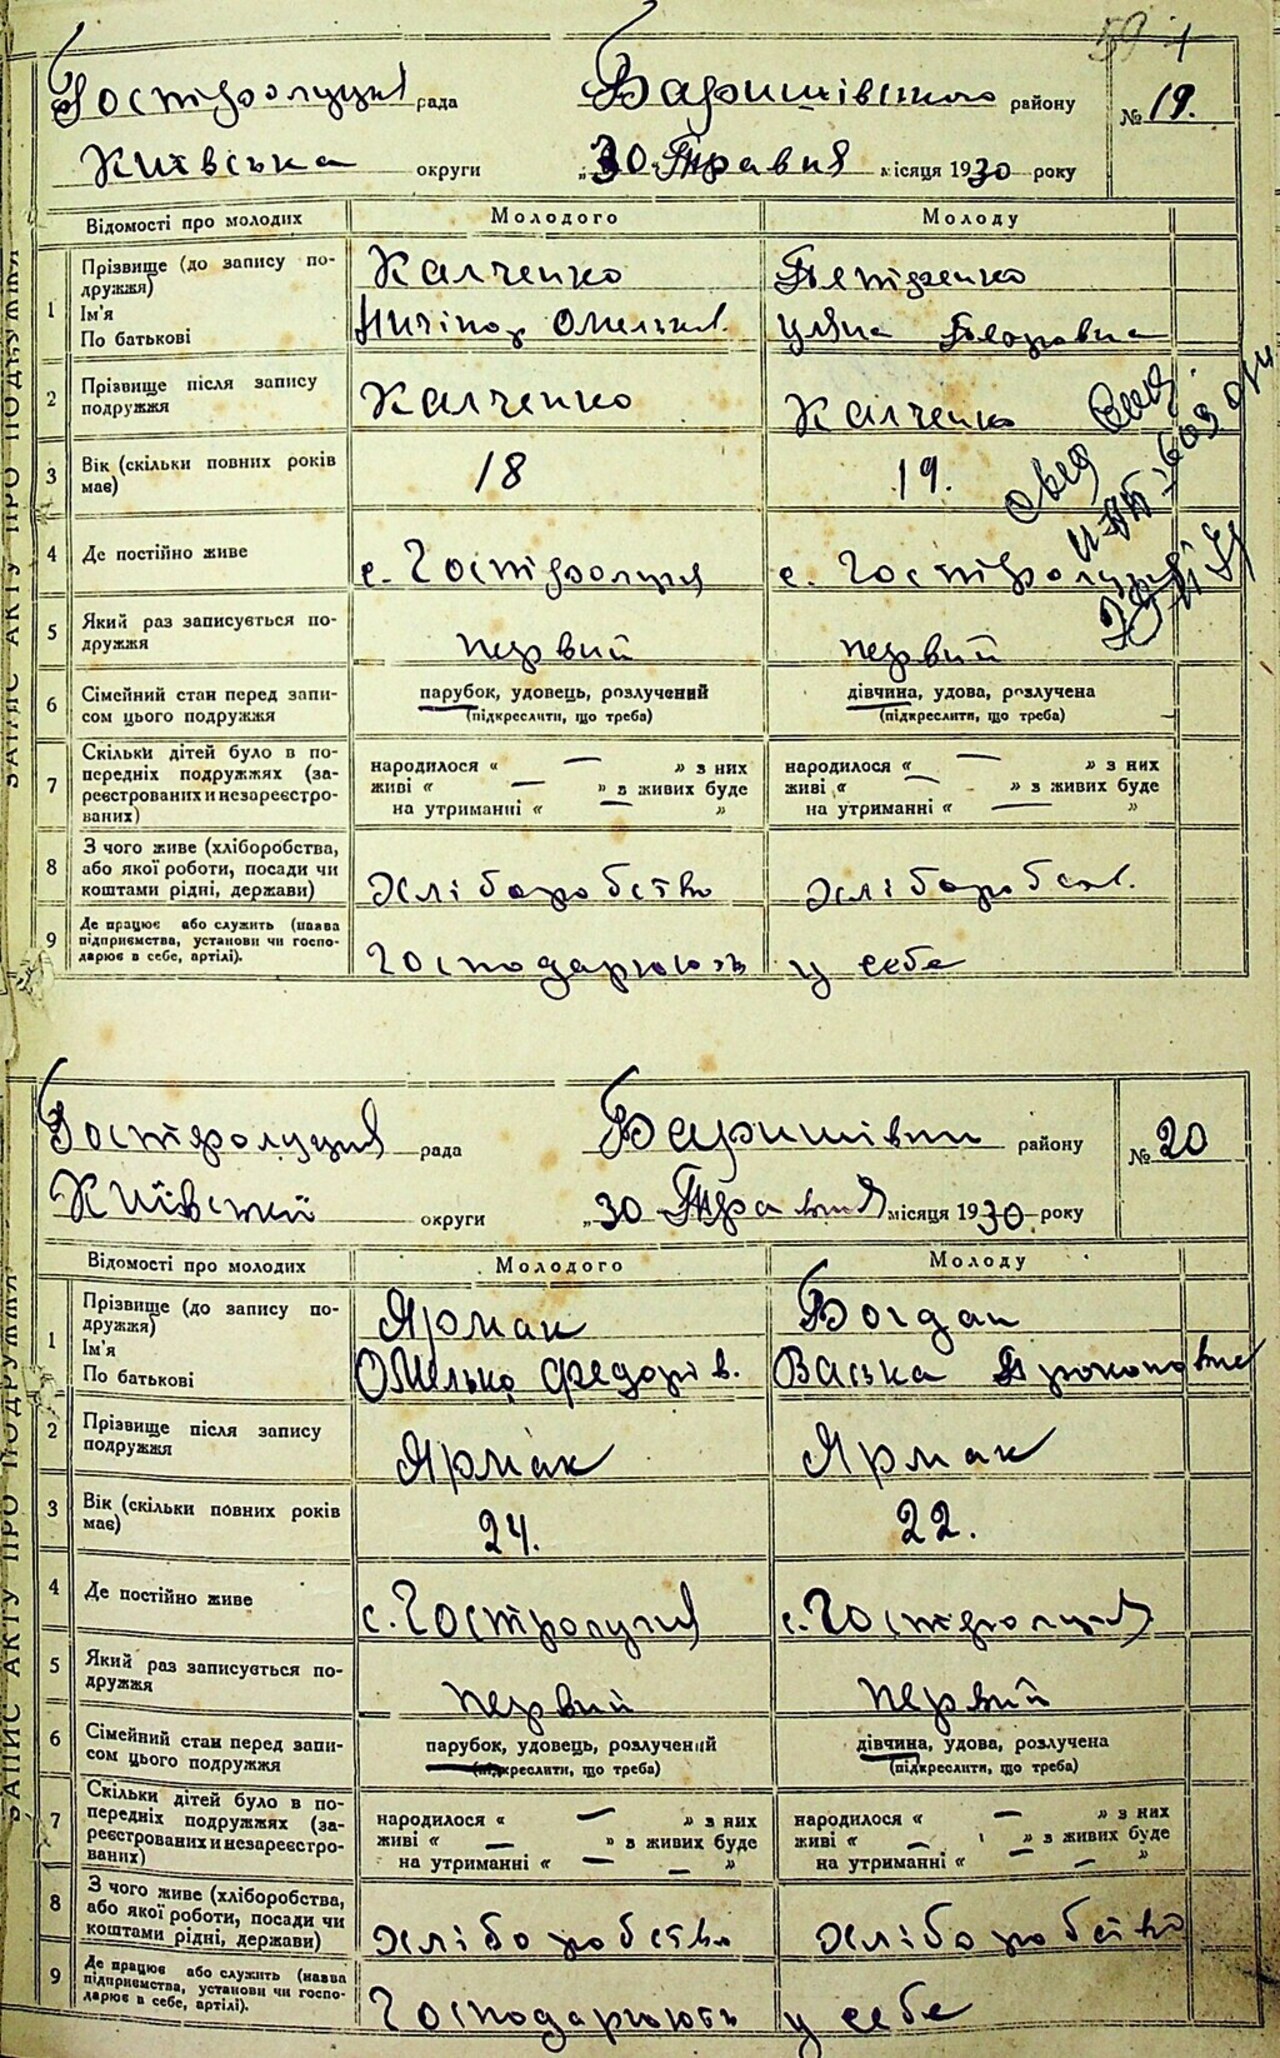 59
Гостролуцка рада Баришівського району № 19.
Київська округи „30" Травня місяця 1930 року
Відомості про молодих Молодого Молоду
1 Прізвище (до запису подружжя) Калченко
Ім'я
По батькові Ничіпор Омельков. Уляна
2 Прізвище після запису подружжя Калченко Калченко
3 Вік (скільки повних років має) 18 19.
4 Де постійно живе с. Гостролуччя с. Гостролуччя
5 Який раз записується подружжя первий первий
6 Сімейний стан перед записом цього подружжя парубок, удовець, розлучений (підкреслити, що треба) дівчина, удова, розлучена (підкреслити, що треба)
7 Скільки дітей було в попередніх подружжях (зареєстрованих и незареєстрованих) народилося « — » з них народилося « — » з них
живі « — » з живих буде живі « — » з живих буде
на утриманні « » на утриманні « — »
8 З чого живе (хліборобства, або якої роботи, посади чи коштами рідні, держави) хліборобство хліборобств.
9 Де працює або служить (назва підприємства, установи чи господарює в себе, артілі). Господарюють у себе
ЗАПИС АКТУ ПРО ПОДРУЖЖЯ
Гостролуцка рада Баришівський району № 20
Київській округи „30 Травня місяця 1930 року
Відомості про молодих Молодого Молоду
1 Прізвище (до запису подружжя) Ярмак Богдан
Ім'я
По батькові Омелько Федорів. Васька Прокоповна
2 Прізвище після запису подружжя Ярмак Ярмак
3 Вік (скільки повних років має) 24. 22.
4 Де постійно живе с. Гостролуччя с. Гостролуччя
5 Який раз записується подружжя первий первий
6 Сімейний стан перед записом цього подружжя парубок, удовець, розлучений (підкреслити, що треба) дівчина, удова, розлучена (підкреслити, що треба)
7 Скільки дітей було в попередніх подружжях (зареєстрованих и незареєстрованих) народилося « — » з них народилося « — » з них
живі « — » з живих буде живі « — » з живих буде
на утриманні « — » на утриманні « — »
8 З чого живе (хліборобства, або якої роботи, посади чи коштами рідні, держави) хліборобство хліборобство
9 Де працює або служить (назва підприємства, установи чи господарює в себе, артілі). Господарюють у себе
ЗАПИС АКТУ ПРО ПОДРУЖЖЯ